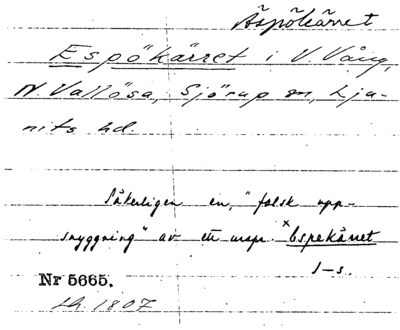 Äspökärret
Espökärret i V. Vång,
N. Vallösa, Sjörup sn, Lju-
nits hd.
Säkerligen en "falsk upp-
snyggning" av ett urspr. ˣEspekärret
J-s.
Nr 5665.
LA. 1807